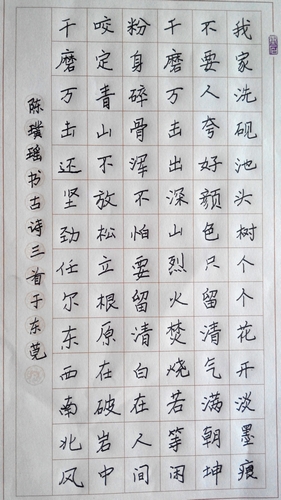 我家洗砚池头树个个花开淡墨痕
不要人夸好颜色只留清气满朝坤
千磨万击出深山烈火焚烧若等闲
粉身碎骨浑不怕要留清白在人间
咬定青山不放松立根原在破岩中
千磨万击还坚劲任尔东西南北风
陈璞瑶书古诗三首于东莞